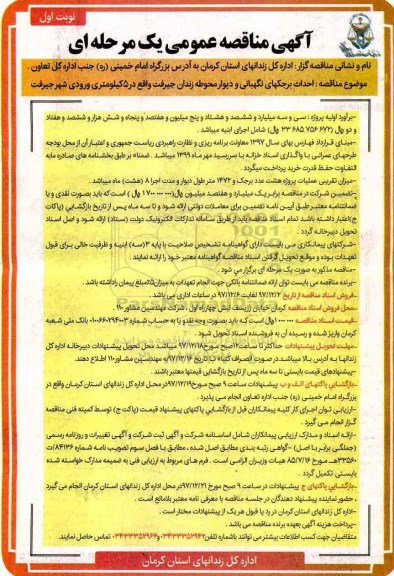 نوبت اول
آگهی مناقصه عمومی یک مرحله ای
نام و نشانی مناقصه گزار : اداره کل زندانهای استان کرمان به آدرس بزرگراه امام خمینی (ره) جنب اداره کل تعاون .
موضوع مناقصه : احداث برجکهای نگهبانی و دیوار محوطه زندان جیرفت واقع در ۵ کیلومتری ورودی شهر جیرفت
-برآورد اولیه پروژه : سی و سه میلیارد و ششصد و هشتاد و پنج میلیون و هفتصد و پنجاه و شش هزار و ششصد و هفتاد
و دو ریال (۶۷۲ ۷۵۶ ۶۸۵ ۳۳ ریال) شامل اجرای ابنیه میباشد .
-مبنای قرارداد فهارس بهای سال ۱۳۹۷ معاونت برنامه ریزی و نظارت راهبردی ریاست جمهوری و اعتبار آن از محل بودجه
طرحهای عمرانی با واگذاری اسناد خزانه با سررسید مهر ماه ۱۳۹۹ میباشد . ضمنا بر طبق بخشنامه های صادره مابه
التفاوت حفظ قدرت خرید پرداخت میگردد .
-میزان تقریبی عملیات پروژه هشت عدد برجک و ۱۴۷۲ متر طول دیوار و مدت اجرا ۸ (هشت) ماه میباشد .
-تضمین شرکت در مناقصه برابر یک میلیارد و هفتصد میلیون ریال (۰۰۰ ۰۰۰ ۱۷۰۰ ریال) است که باید بصورت نقدی و یا
ضمانتنامه معتبر طبق آیین نامه تضمین برای معاملات دولتی ارائه شود و تا سه ماه پس از تاریخ بازگشایی (پاکات
ج) اعتبار داشته باشد تمام اسناد مناقصه باید از طریق سامانه تدارکات الکترونیک دولت (ستاد) ارائه شود و اصل اسناد
تحویل دبیرخانه گردد .
-شرکتهای پیمانکاری می بایست دارای گواهینامه تشخیص صلاحیت با پایه ۳ (سه) ابنیه و ظرفیت خالی برای قبول
تعهدات بوده و موقع تحویل گرفتن اسناد مناقصه گواهینامه معتبر خود را ارائه نمایند .
-مناقصه مذکور به صورت یک مرحله ای برگزار می شود .
-برنده مناقصه می بایست توان ارائه ضمانتنامه بانکی جهت انجام تعهدات به میزان ۵٪ مبلغ پیمان را داشته باشد .
-فروش اسناد مناقصه از تاریخ ۹۷/۱۲/۲ لغایت ۹۷/۱۲/۶ در ساعات اداری می باشد .
-محل فروش اسناد مناقصه کرمان خیابان زریسف نبش چهارراه اول ، شرکت مهندسین مشاور ۱۱۰ .
-قیمت اسناد مناقصه ۱۰۰۰ ۰۰۰ ریال است که باید بصورت وجه نقد و یا به حساب شماره بانک ملی شعبه
کرمان واریز شده و رسیده آن به فروشنده اسناد تحویل شود .
-مهلت تحویل پیشنهادات حداکثر تا ساعت ۱۲ صبح مورخ ۹۷/۱۲/۱۸ میباشد محل تحویل پیشنهادات دبیرخانه اداره کل
زندانها به آدرس بالا میباشد در صورت انصراف کتبا تا تاریخ ۹۷/۱۲/۱۶ به مهندسین مشاور ۱۱۰ اطلاع دهند.
-پیشنهادهای قیمت بایستی تا سه ماه پس از تاریخ بازگشایی قیمتها معتبر باشند .
-بازگشایی پاکتهای الف و ب پیشنهادات ساعت ۹ صبح مورخ ۹۷/۱۲/۱۹ در محل اداره کل زندانهای استان کرمان واقع در
بزرگراه امام خمینی (ره) جنب اداره تعاون انجام می پذیرد .
-ارزیابی توان اجرای کار کلیه پیمانکاران قبل از بازگشایی پاکتهای پیشنهاد قیمت (پاکت ج) توسط کمیته فنی مناقصه
گزار انجام می گیرد .
-ارائه اسناد و مدارک ارزیابی پیمانکاران شامل اساسنامه شرکت و آگهی ثبت شرکت و آگهی تغییرات و روزنامه رسمی
(جملگی برابر با اصل) -گواهی رتبه بندی مطابق اصل شده ، مطابق با فصل سوم تصویب نامه شماره ۸۴۱۳۶/ت
۳۳۵۶۰هـ مورخ ۸۵/۷/۱۶ هیات وزیران الزامی است . فرم های مربوط به ارزیابی فنی به ضمیمه مدارک خواسته شده
بایستی تکمیل گردد .
-بازگشایی پاکتهای ج پیشنهادات در ساعت ۹ صبح مورخ ۹۷/۱۲/۲۱ در محل اداره کل زندانهای استان کرمان انجام می گیرد
، حضور نماینده پیشنهاد دهندگان در جلسه مناقصه با معرفی نامه معتبر بلامانع است .
-اداره کل زندانهای استان کرمان در رد یا قبول هر یک از پیشنهادات مختار است .
-پرداخت هزینه آگهی بعهده برنده مناقصه می باشد .
متقاضیان جهت کسب اطلاعات بیشتر می توانند باشماره تلفن تماس حاصل نمایند.
اداره کل زندانهای استان کرمان